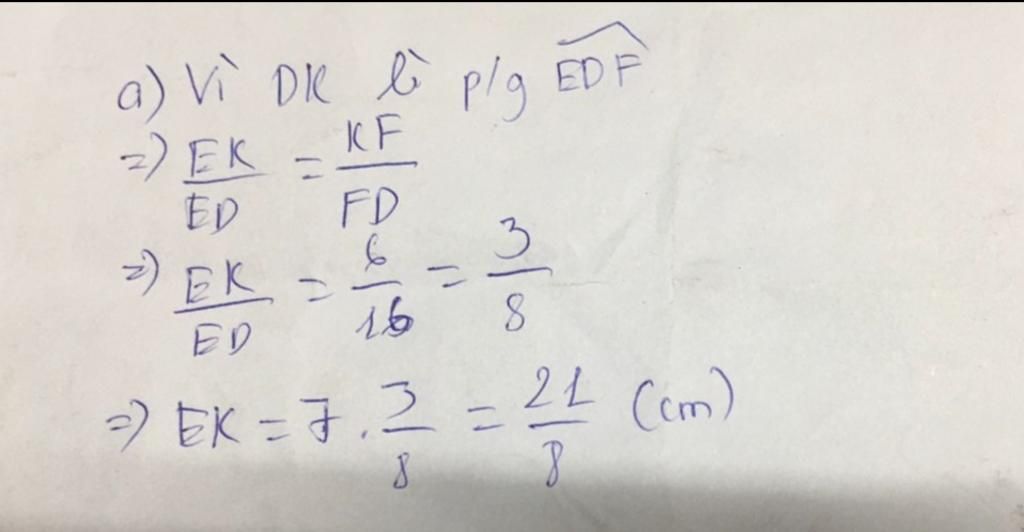 a) Vì DK là p/g \widehat{EDF}
=> \frac{EK}{ED} = \frac{KF}{FD}
=> \frac{EK}{ED} = \frac{6}{16} = \frac{3}{8}
=> EK = 7 . \frac{3}{8} = \frac{21}{8} (cm)